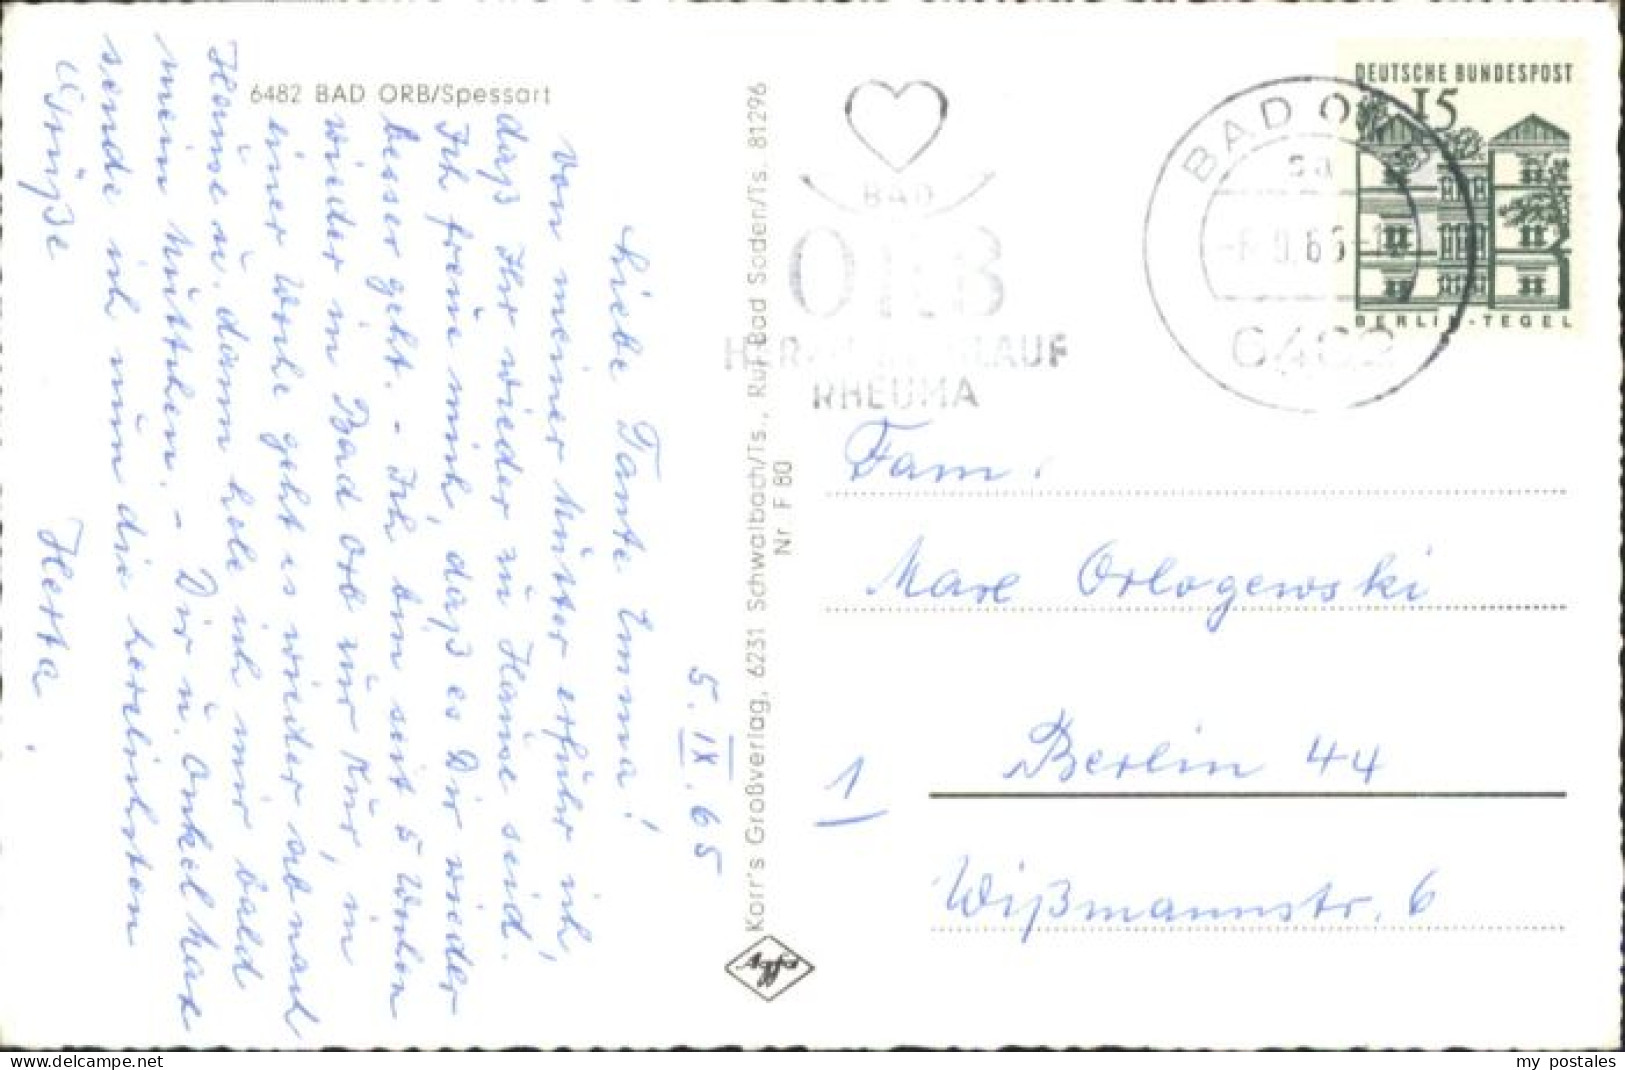 6482 BAD ORB/Spessart
5. IX. 65
Liebe Tante Emma!
Von meiner Mutter erfuhr ich,
daß Ihr wieder zu Hause seid.
Ich freue mich, daß es Dir wieder
besser geht. - Ich bin seit 5 Wochen
wieder in Bad Orb zur Kur, in
einer Woche geht es wieder ab nach
Hause u. dann hole ich mir bald
mein Muttchen. - Dir u. Onkel Max
sende ich nun die herzlichsten
Grüße
Herta.
Korr's Großverlag, 6231 Schwalbach/Ts., Ruf Bad Soden/Ts. 81296
Nr. F 80
BAD
ORB
RHEUMA
BAD ORB
sa
6482
DEUTSCHE BUNDESPOST
15
BERLIN-TEGEL
Fam.
Max Orlogewski
1
Berlin 44
Wißmannstr. 6
my postales
www.delcampe.net